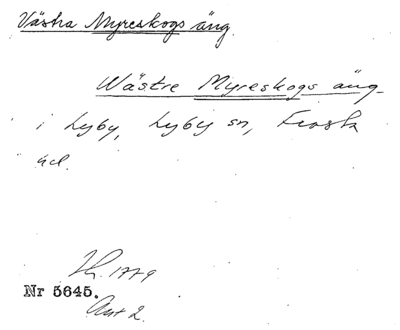 Västra Myreskogs äng.
Wästre Myreskogs äng
i Lyby, Lyby sn, Frosta
hd.
1779
Nr 5645.
Akt 2.